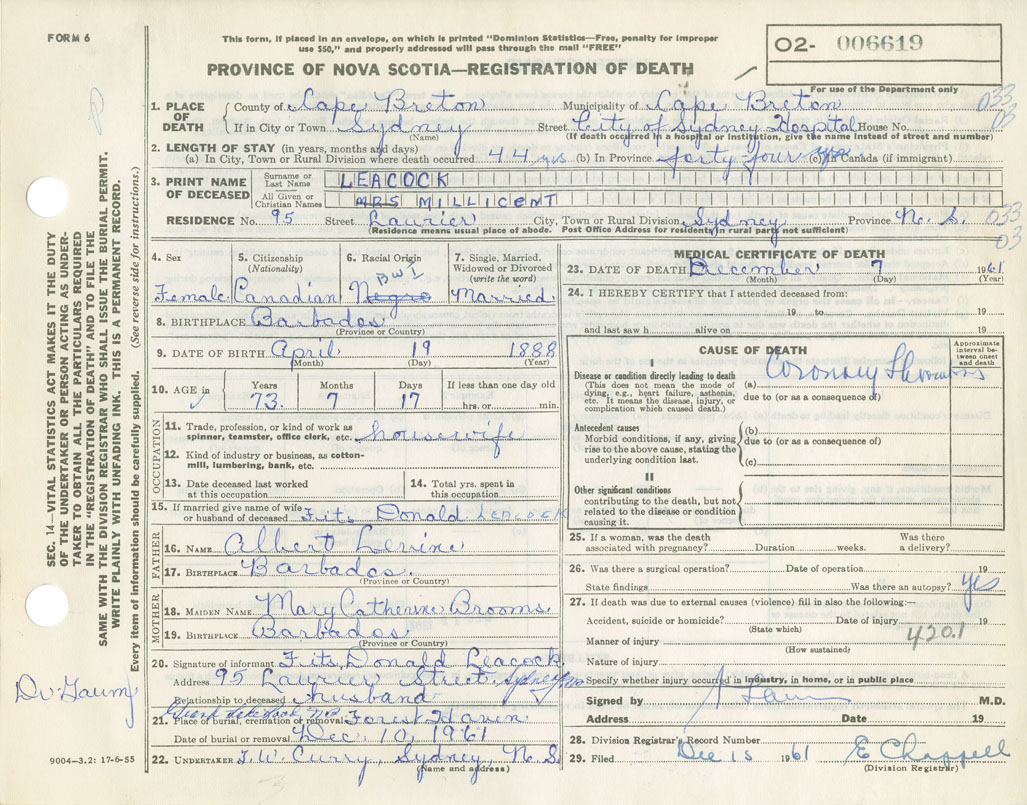 FORM 6
This form, if placed in an envelope, on which is printed "Dominion Statistics—Free, penalty for improper
use $50," and properly addressed will pass through the mail "FREE"
PROVINCE OF NOVA SCOTIA—REGISTRATION OF DEATH
02- 006619
For use of the Department only
SEC. 14—VITAL STATISTICS ACT MAKES IT THE DUTY
OF THE UNDERTAKER OR PERSON ACTING AS UNDER-
TAKER TO OBTAIN ALL THE PARTICULARS REQUIRED
IN THE "REGISTRATION OF DEATH" AND TO FILE THE
SAME WITH THE DIVISION REGISTRAR WHO SHALL ISSUE THE BURIAL PERMIT.
WRITE PLAINLY WITH UNFADING INK. THIS IS A PERMANENT RECORD.
Every item of information should be carefully supplied. (See reverse side for instructions.)
1. PLACE OF DEATH County of Cape Breton Municipality of Cape Breton 033
If in City or Town Sydney Street City of Sydney Hospital House No. 03
(Name) (If death occurred in a hospital or institution, give the name instead of street and number)
2. LENGTH OF STAY (in years, months and days)
(a) In City, Town or Rural Division where death occurred 44 yrs (b) In Province forty four yrs (c) in Canada (if immigrant)
3. PRINT NAME OF DECEASED Surname or Last Name LEACOCK
All Given or Christian Names MRS MILLICENT
RESIDENCE No. 95 Street Laurier City, Town or Rural Division Sydney Province N. S. 033
(Residence means usual place of abode. Post Office Address for residents in rural parts not sufficient) 03
4. Sex 5. Citizenship (Nationality) 6. Racial Origin 7. Single, Married, Widowed or Divorced (write the word)
BWI
Female Canadian Negro Married
8. BIRTHPLACE Barbados
(Province or Country)
9. DATE OF BIRTH April 19 1888
(Month) (Day) (Year)
10. AGE in Years Months Days If less than one day old
73. 7 17 hrs. or min.
OCCUPATION
11. Trade, profession, or kind of work as
spinner, teamster, office clerk, etc. housewife
12. Kind of industry or business, as cotton-
mill, lumbering, bank, etc.
13. Date deceased last worked
at this occupation
14. Total yrs. spent in
this occupation
15. If married give name of wife
or husband of deceased Fits Donald LEACOCK
FATHER
16. NAME Albert Levine
17. BIRTHPLACE Barbados.
(Province or Country)
MOTHER
18. MAIDEN NAME Mary Catherine Brooms.
19. BIRTHPLACE Barbados
(Province or Country)
20. Signature of informant Fits, Donald Leacock.
Address 95 Laurier Street, Sydney
Relationship to deceased husband
21. Place of burial, cremation or removal Forest Haven
Date of burial or removal Dec, 10, 1961
22. UNDERTAKER T.W. Curry, Sydney, N. S.
(Name and address)
9004—3.2: 17-6-55
MEDICAL CERTIFICATE OF DEATH
23. DATE OF DEATH December 7 1961
(Month) (Day) (Year)
24. I HEREBY CERTIFY that I attended deceased from:
19 to 19
and last saw h alive on 19
CAUSE OF DEATH
Approximate
interval be-
tween onset
and death
I
Disease or condition directly leading to death
(This does not mean the mode of
dying, e.g., heart failure, asthenia,
etc. It means the disease, injury, or
complication which caused death.)
(a) Coronary Thrombosis
due to (or as a consequence of)
Antecedent causes
Morbid conditions, if any, giving
rise to the above cause, stating the
underlying condition last.
(b)
due to (or as a consequence of)
(c)
II
Other significant conditions
contributing to the death, but not
related to the disease or condition
causing it.
25. If a woman, was the death
associated with pregnancy? Duration weeks. Was there
a delivery?
26. Was there a surgical operation? Date of operation 19
State findings Was there an autopsy? Yes
27. If death was due to external causes (violence) fill in also the following:—
Accident, suicide or homicide? Date of injury 19
(State which)
420.1
Manner of injury
(How sustained)
Nature of injury
Specify whether injury occurred in industry, in home, or in public place
Signed by M.D.
Address Date 19
28. Division Registrar's Record Number
29. Filed Dec 15 1961 E Chappell
(Division Registrar)